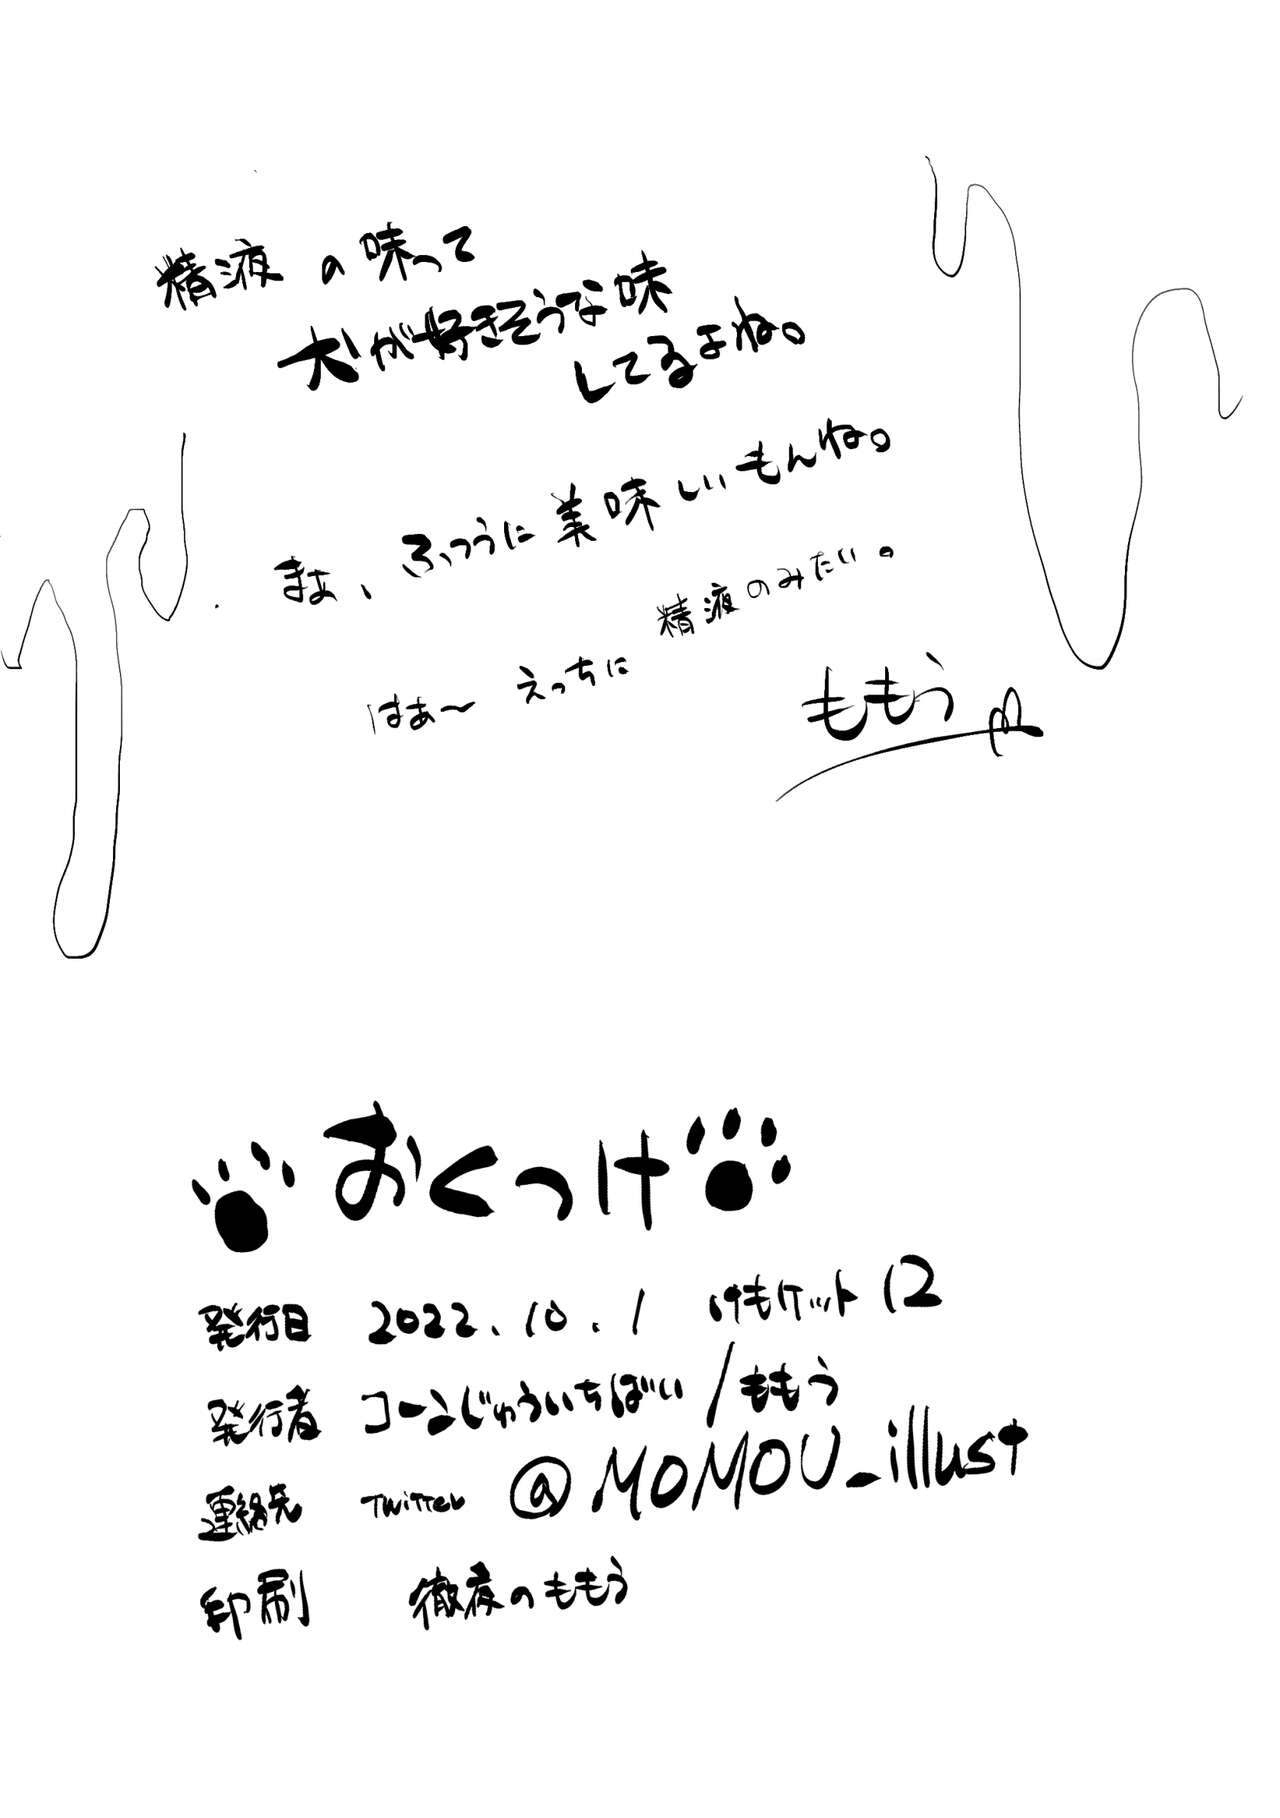 精液の味って
犬が好きそうな味
してるよね。
まぁ、ふつうに美味しいもんね。
はぁ～ えっちに 精液のみたい。
ももう
おくつけ
発行日 2022.10.1 けもケット12
発行者 コーンじゅういちばい/ももう
連絡先 Twitter @MOMOU_illust
印刷 徹夜のももう